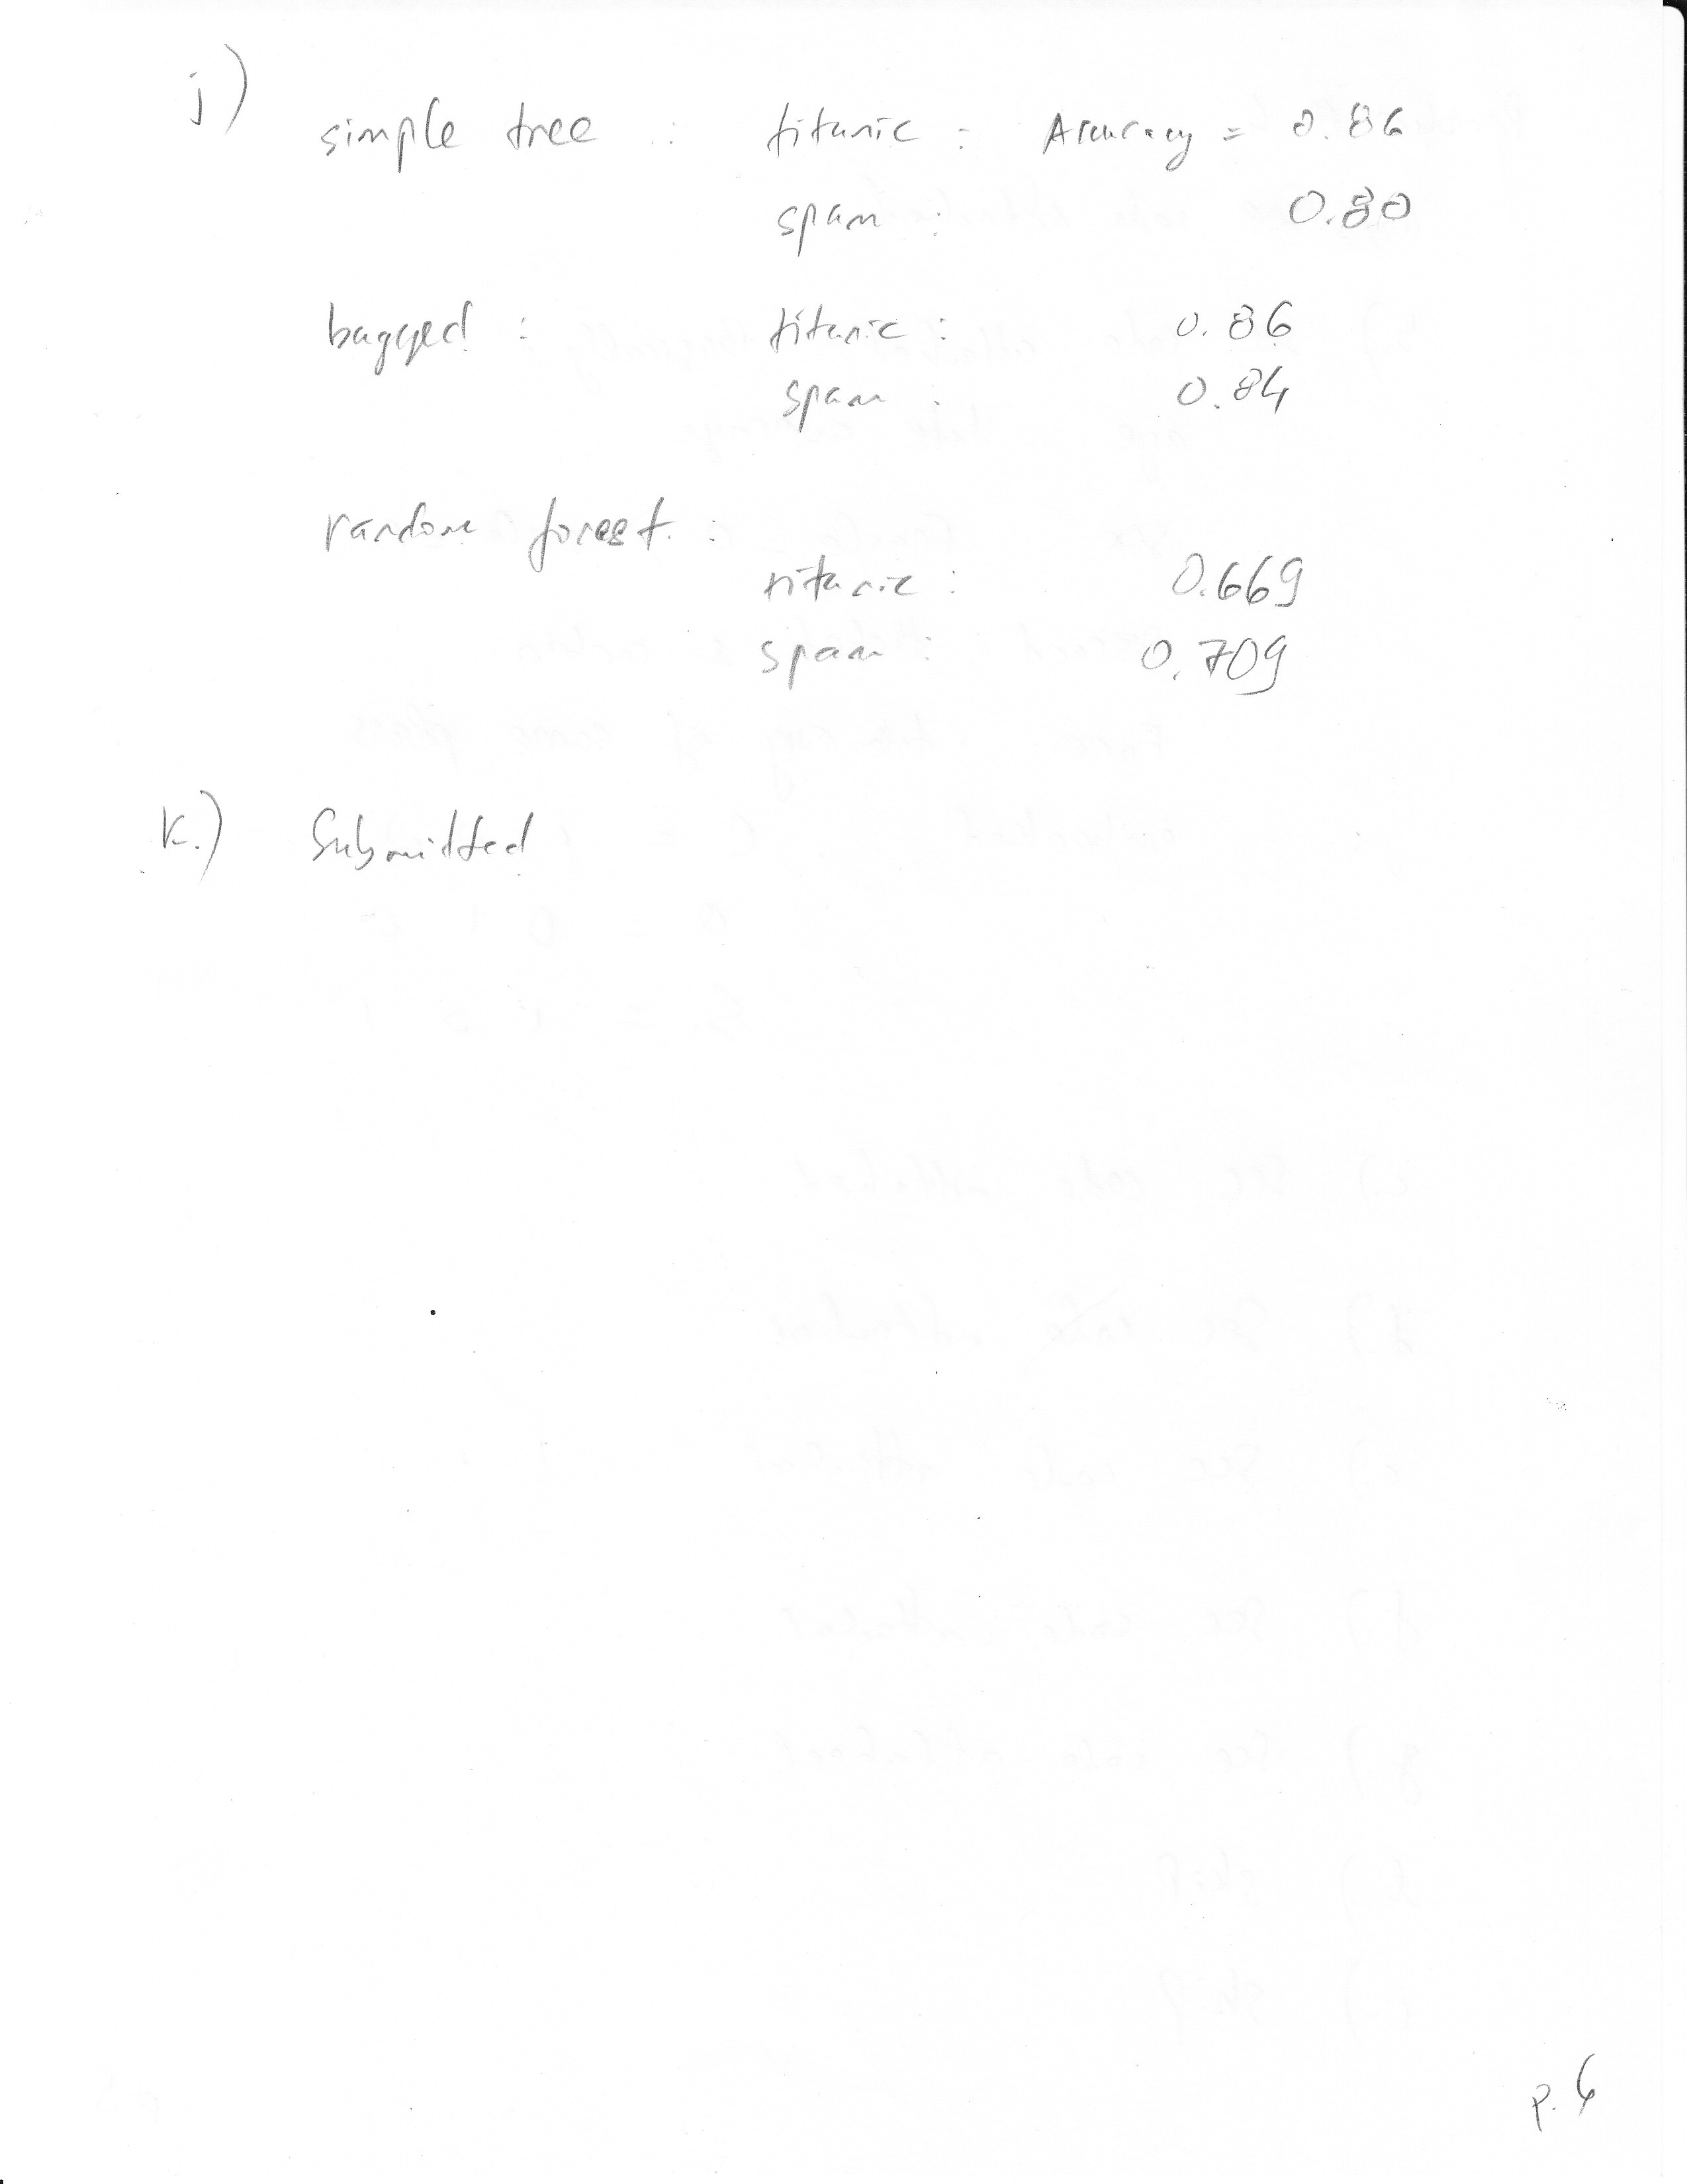 j) simple tree : titanic : Accuracy = 0.86
spam : 0.80
bagged : titanic : 0.86
spam : 0.84
random forest :
titanic : 0.669
spam : 0.709
K.) Submitted
p. 6